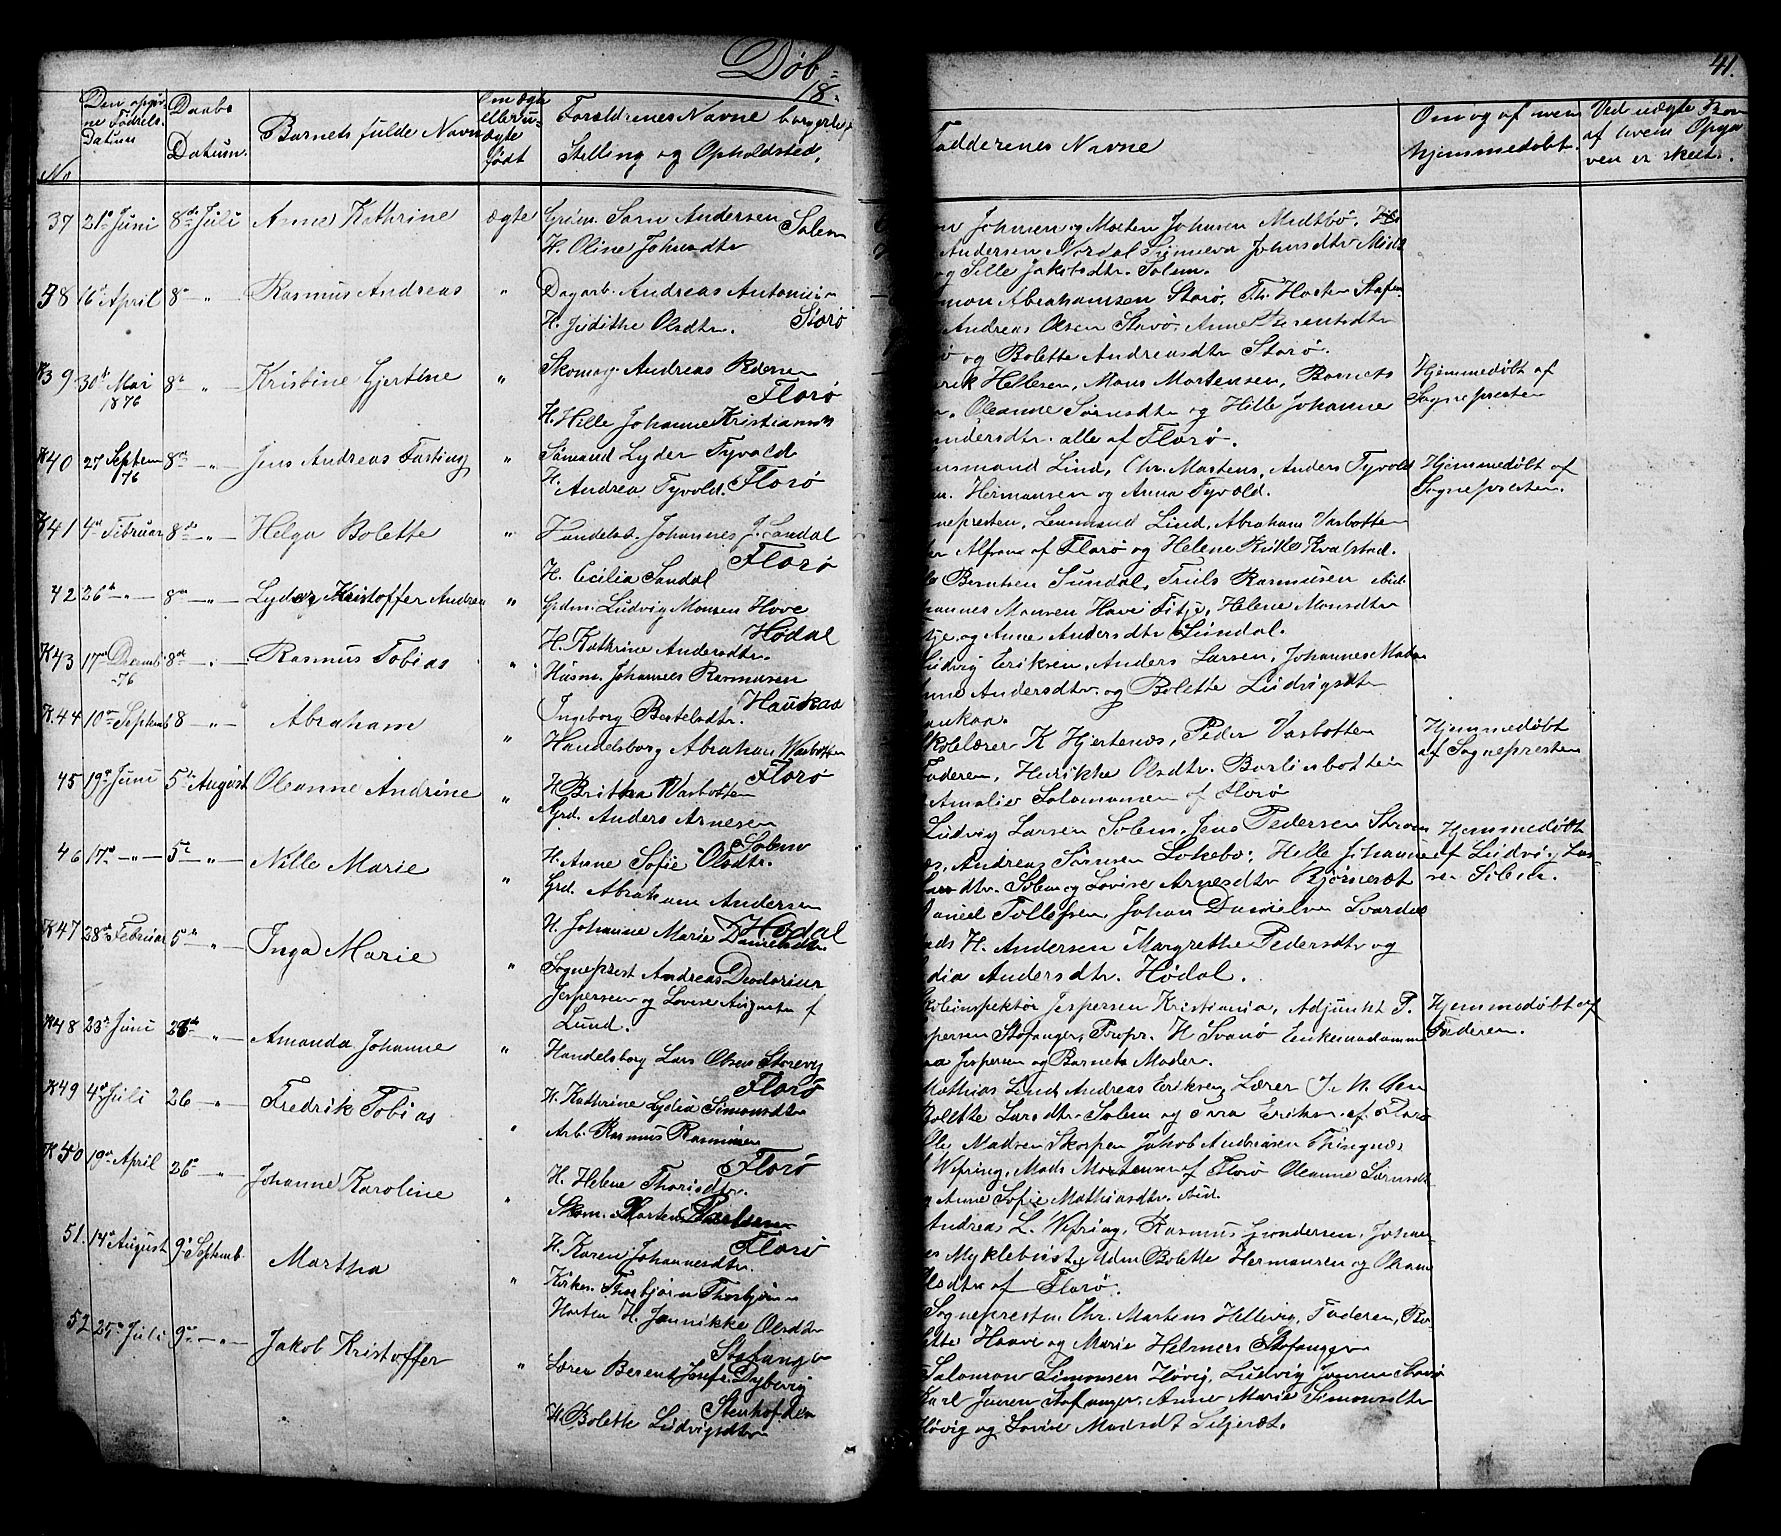 Døb-
18
41.
No
Den opgivne Fødsels-Datum
Daabs Datum.
Barnets fulde Navn
Om ægte eller uægte født
Forældrenes Navne borgerlige Stilling og Opholdsted.
Fadderenes Navne
Om og af hvem hjemmedøbt.
Ved uægte Børn af hvem Opgaven er skeet.
37 21de Juni 8de Juli Anne Kathrine ægte Grdm. Søren Andersen Solem
H. Oline Johnsdtr
Johnsen og Morten Johnsen Midtbø,
Andersen Nordal Johnsdtr
og Sille Jakobsdtr. Solem.
38 16de April 8de -"- Rasmus Andreas " Dagarb. Andreas Antonisen
H. Judithe Olsdtr. Storø
Simon Abrahamsen Storø, Th. Horten Stafan
Andreas Olsen Storø, Anne Berentsdtr
og Bolette Andreasdtr Storø.
K39 30te Mai 1876 8de " Kristine Gjertine " Skomag. Andreas Pedersen
Florø
H. Hille Johanne Kristiansdtr
Erik Hellesen, Mons Mortensen, Barnets
Oleanne Sørensdtr og Hille Johanne
Andersdtr. alle af Florø.
Hjemmedøbt af
Sognepresten
K40 27 Septem 76 8de -"- Jens Andreas Fasting " Sømand Lyder Tyvold
H. Andrea Tyvold. Florø
Lensmand Lind, Chr. Martens, Anders Tyvold
Hermansen og Anna Tyvold.
Hjemmedøbt af
Sognepresten.
K41 4de Februar 8de -"- Helga Bolette " Handelsb. Johannes J. Sandal
Florø
H. Cicilia Sandal
Sognepresten, Lensmand Lind, Abraham Vasbotten
af Florø og Helene Kvalstad.
42 26de -"- 8de -"- Lyder Kristoffer Andreas " Grdm. Ludvig Monsen Hove
Hødal
H. Kathrine Andersdtr.
Berntsen Sundal, Truls Rasmusen ibid.
Johannes Monsen Hove Fitje, Helene Monsdtr
Fitje, og Anne Andersdtr Sundal.
K43 17de Decemb -76 8de -"- Rasmus Tobias " Husm. Johannes Rasmusen
Haukaa
Ingeborg Bertelsdtr.
Ludvig Eriksen, Anders Larsen, Johannes
Andersdtr. og Bolette Ludvigsdtr
Haukaa.
K.44 10de Septemb 8 -"- Abraham " Handelsborg Abraham Vasbotten
Florø
H. Vasbotten
Skolelærer K Hjertenæs, Peder Vasbotten
Faderen, Henrikke Olsdtr.
Amalie Salomonsen af Florø
Hjemmedøbt
af Sognepresten
45 19de Juni 5te August Oleanne Andrine " Grd. Anders Arnesen
Solem
H. Anne Sofie Olsdtr.
Ludvig Larsen Solem, Jens Pedersen
Andreas Sørensen Løkebø, Hille Johanne
Solem og Lovise Arnesdtr
Hjemmedøbt
af Ludvig Lar-
sen Solem.
46 17de -"- 5te -"- Nille Marie " Grd. Abraham Andersen
Hødal
H. Johanne Marie Danielsdtr
Daniel Tollefsen, Johan Danielsen Svardal
Mads H. Andersen Margrethe Pedersdtr og
Andersdtr. Hødal.
K47 28de Februar 5te " Inga Marie " Sogneprest Andreas Diodorius
Jespersen og Lovise Augusta f
Lund.
Skoleinspektør Jespersen Kristiania, Adjunkt P.
Jespersen Stafanger, Propr. H Svanø Enkemadamme
Jespersen og Barnets Moder.
Hjemmedøbt af
Faderen.
K48 23de Juni 26de -"- Amanda Johanne " Handelsborg Lars Olsen Storevig
Florø
H. Kathrine Lydia Simonsdtr
Mathias Lind, Andreas Eriksen, Lærer
Bolette Larsdtr Solem og Eriksen af Florø
K49 4de Juli 26 -"- Fredrik Tobias " Arb. Rasmus Rasmusen
Florø
H. Helene Thorisdtr.
Ole Madsen Skorpen Jakob Andersen
Vefring, Mads Mortensen af Florø Oleanne Sørensdtr
Anne Sofie Mathiasdtr. ibid.
K50 19de April 26de -"- Johanne Karoline " Skom. Morten
Florø
H. Karen Johannesdtr.
Andreas L. Vefring, Rasmus Gundersen, Johan-
es Myklebust, Bolette Hermansen og
Olsdtr af Florø.
51. 14de August 9de Septemb. Martha " Kirkes. Thorbjørn Thorbjørnsen
Horten H. Jannikke Olsdtr
Stafanger
Sognepresten Chr. Martens Hellevig, Faderen, Bo-
lette Haavi og Marie Helmers Stafanger
52 25de Juli 9de -"- Jakob Kristoffer " Lærer Berent Josef Dybevig
Stenhofden
H. Bolette Ludvigsdtr
Salomon Simonsen Høvig, Ludvig Jensen
Karl Jensen Stafanger, Anne Marie Simonsdtr
Høvig og Lovise Madsdt